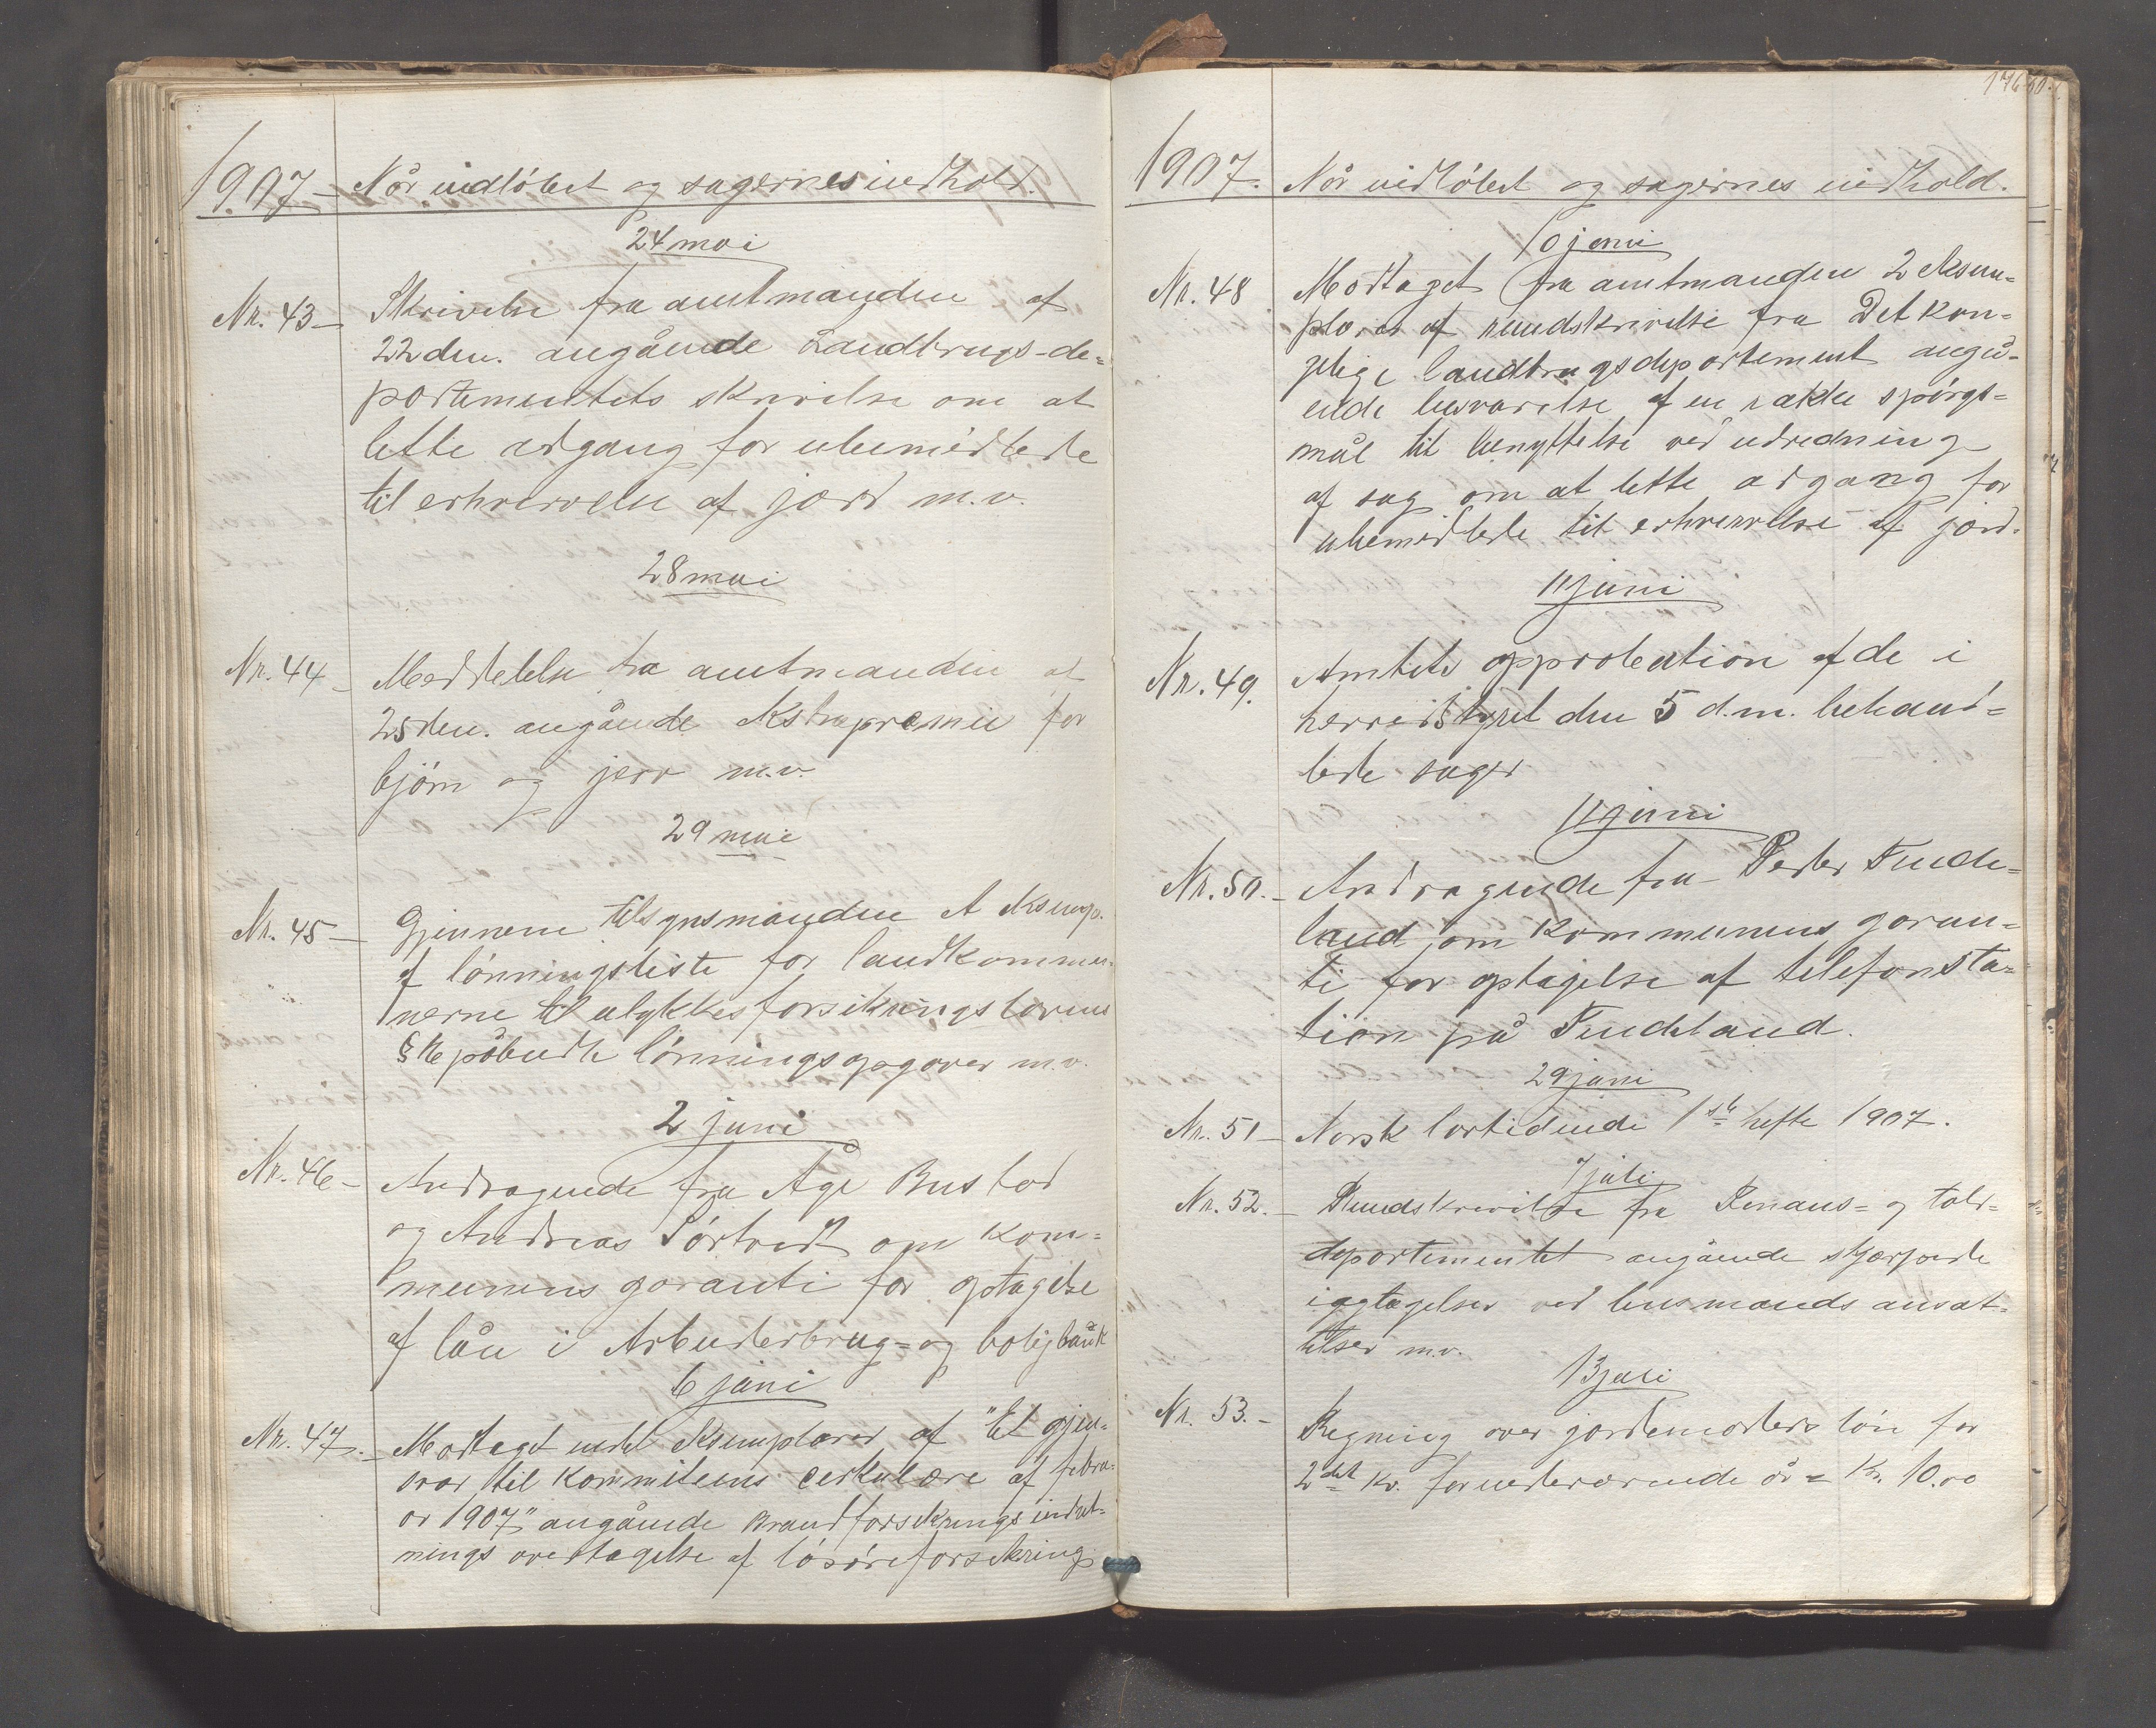 1907 – Når indløbet og sagernes indhold.
24 mai
Nr. 43 – Skrivelse fra amtmanden af
22 den. angående Landbrugs-de=
partementets skrivelse om at
lette adgang for ubemidlede
til erhvervelse af jord m.v.
28 mai
Nr. 44 – Meddelelse fra amtmanden af
25 den. angående ekstrapræmie for
bjørn og jerv m.v.
29 mai
Nr. 45 – Gjennem tilsynsmanden et eksemp.
af lønningsliste for landkommu-
nerne til ulykkesforsikringslovens
§ påbudte lønningsopgaver m.v.
2 juni
Nr. 46 – Andragende fra Åge Bustad
og Andreas Sørtveit om kom=
munens garanti for optagelse
af lån i Arbeiderbrug= og boligbank
6 juni
Nr. 47. – Modtaget endel eksemplarer af "Et gjen-
svar til kommiteens cirkulære af febru-
ar 1907" angående Brandforsikringsindret-
nings overtagelse af løsøreforsikring.
176
1907. Når indløbet og sagernes indhold.
10 juni
Nr. 48 Modtaget fra amtmanden 2 eksem=
plarer af rundskrivelse fra Det kon=
gelige landbrugsdepartement angå-
ende besvarelse af en række spørgs=
mål til benyttelse ved udredning
af sag om at lette adgang for
ubemidlede til erhvervelse af jord.
11 juni
Nr. 49. Amtets approbation af de i
herredstyret den 5 d.m. behand=
lede sager
11 juni
Nr. 50. – Andragende fra Peder Finde=
land om kommunens garan=
ti for optagelse af telefonsta=
tion på Findeland.
29 juni
Nr. 51 – Norsk lovtidende 1ste hefte 1907.
7 juli
Nr. 52. – Rundskrivelse fra Finans= og told=
departementet angående skjærpede
iagtagelser ved lensmands ansæt=
telser m.v.
13 juli
Nr. 53. – Regning over jordemoders løn for
2det kv. for indeværende år = Kr. 10.00